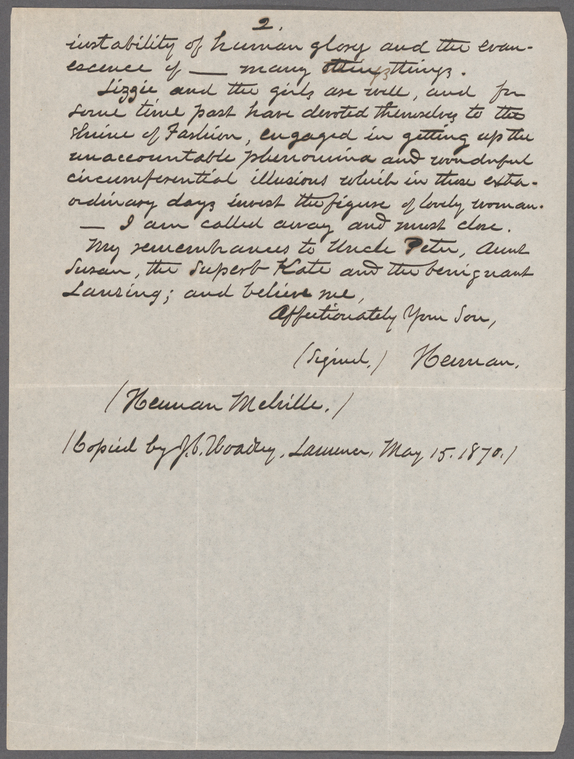 2.
instability of human glory and the evan-
escence of — many other things.
Lizzie and the girls are well, and for
some time past have devoted themselves to the
shrine of Fashion, engaged in getting up the
unaccountable phenomina and wonderful
circumferential illusions which in these extra-
ordinary days invest the figure of lovely woman.
— I am called away and must close.
My remembrances to Uncle Peter, Aunt
Susan, the superb Kate and the benignant
Lansing; and believe me,
Affectionately Your Son,
(Signed.) Herman.
(Herman Melville.)
(Copied by J.C. Hoadley, Lawrence, May 15. 1870.)